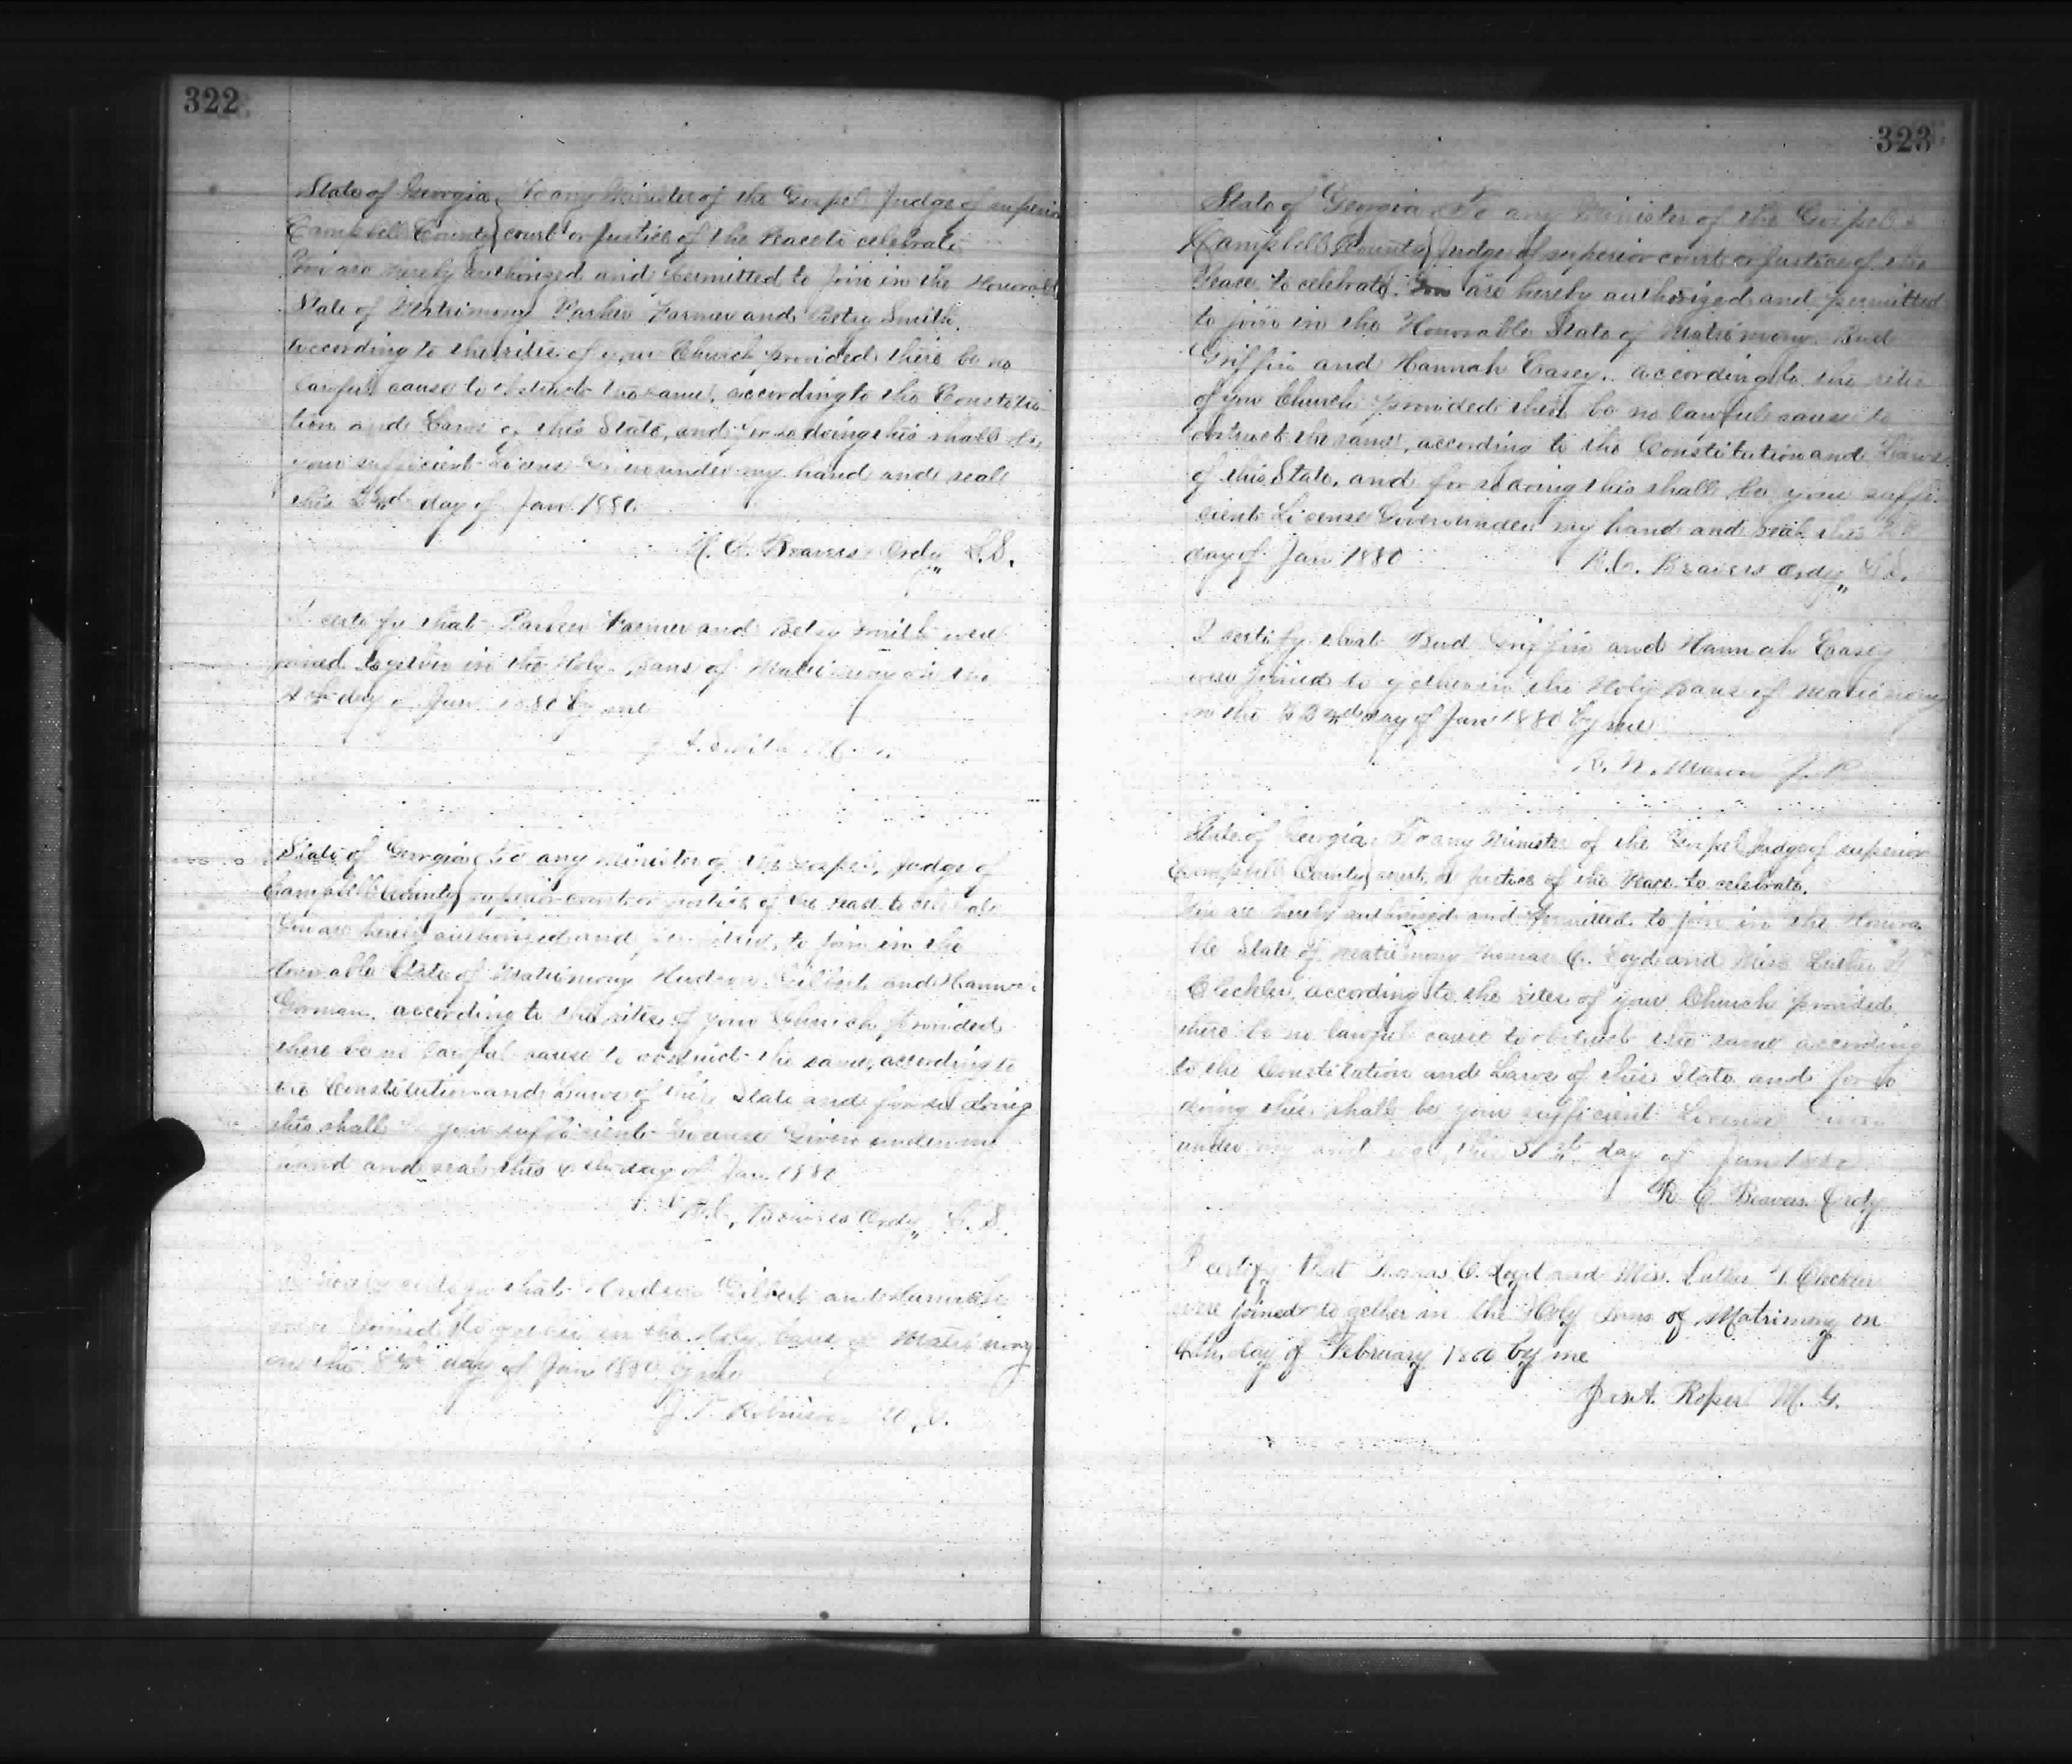 322
State of Georgia To any Minister of the Gospel Judge of superior
Campbell County court or Justice of the Peace to celebrate
You are hereby authorized and permitted to join in the Honorabl
State of Matrimony Parker Farmer and Betsy Smith
according to the rites of your Church provided there be no
lawful cause to obstruct the same, according to the Constitu
tion and Laws of this State, and for so doing this shall be
your sufficient License Given under my hand and seal
this day of Jan 1880
R. C. Beavers Ordy L.S.
I certify that Parker Farmer and Betsy Smith were
joined together in the Holy bans of Matrimony on the
day of Jan 1880 by me
Smith
State of Georgia To any Minister of the Gospel, Judge of
Campbell County superior court or justice of the Peace to celebrate
You are hereby authorized and permitted, to join in the
Honorable State of Matrimony Hudson Gilbert and Hanna
Gorman, according to the rites of your Church provided
there be no lawful cause to obstruct the same, according to
the Constitution and Laws of this State and for so doing
this shall your sufficient License Given under my
hand and seal this day of Jan 1880
R.C. Beavers Ordy L. S.
I hereby certify that Hudson Gilbert and Hannah
were joined together in the Holy bans of Matrimony
on the 8th day of Jan 1880 by me
J. T. Robinson
323
State of Georgia To any Minister of the Gospel
Campbell County Judge of superior court or Justice of the
Peace to celebrate. You are hereby authorized and permitted
to join in the Honorable State of Matrimony Bud
Griffin and Hannah Casey, according to the rites
of your Church provided there be no lawful cause to
obstruct the same, according to the Constitution and Laws
of this State, and for so doing this shall be your suffi
cient License Given under my hand and seal this
day of Jan 1880 R.C. Beavers Ordy L.S.
I certify that Bud Griffin and Hannah Casey
were joined to gether in the Holy bans of Matrimony
on the 23rd day of Jan 1880 by me
R. N. Mason J. P
State of Georgia To any Minister of the Gospel Judge of superior
Campbell County court or Justice of the Peace to celebrate.
You are hereby authorized and permitted to join in the Honora
ble State of Matrimony Thomas C. Loyd and Miss Luther
Cleckler, according to the rites of your Church provided
there be no lawful cause to obstruct the same according
to the Constitution and Laws of this State and for so
doing this shall be your sufficient License Given
under my and this 31st day of Jan 1880
R. C. Beavers Ordy
I certify that Thomas C. Loyd and Miss. Luther Cleckler
were joined to gether in the Holy bans of Matrimony on
4th day of February 1880 by me
Jas A. Roper M. G.